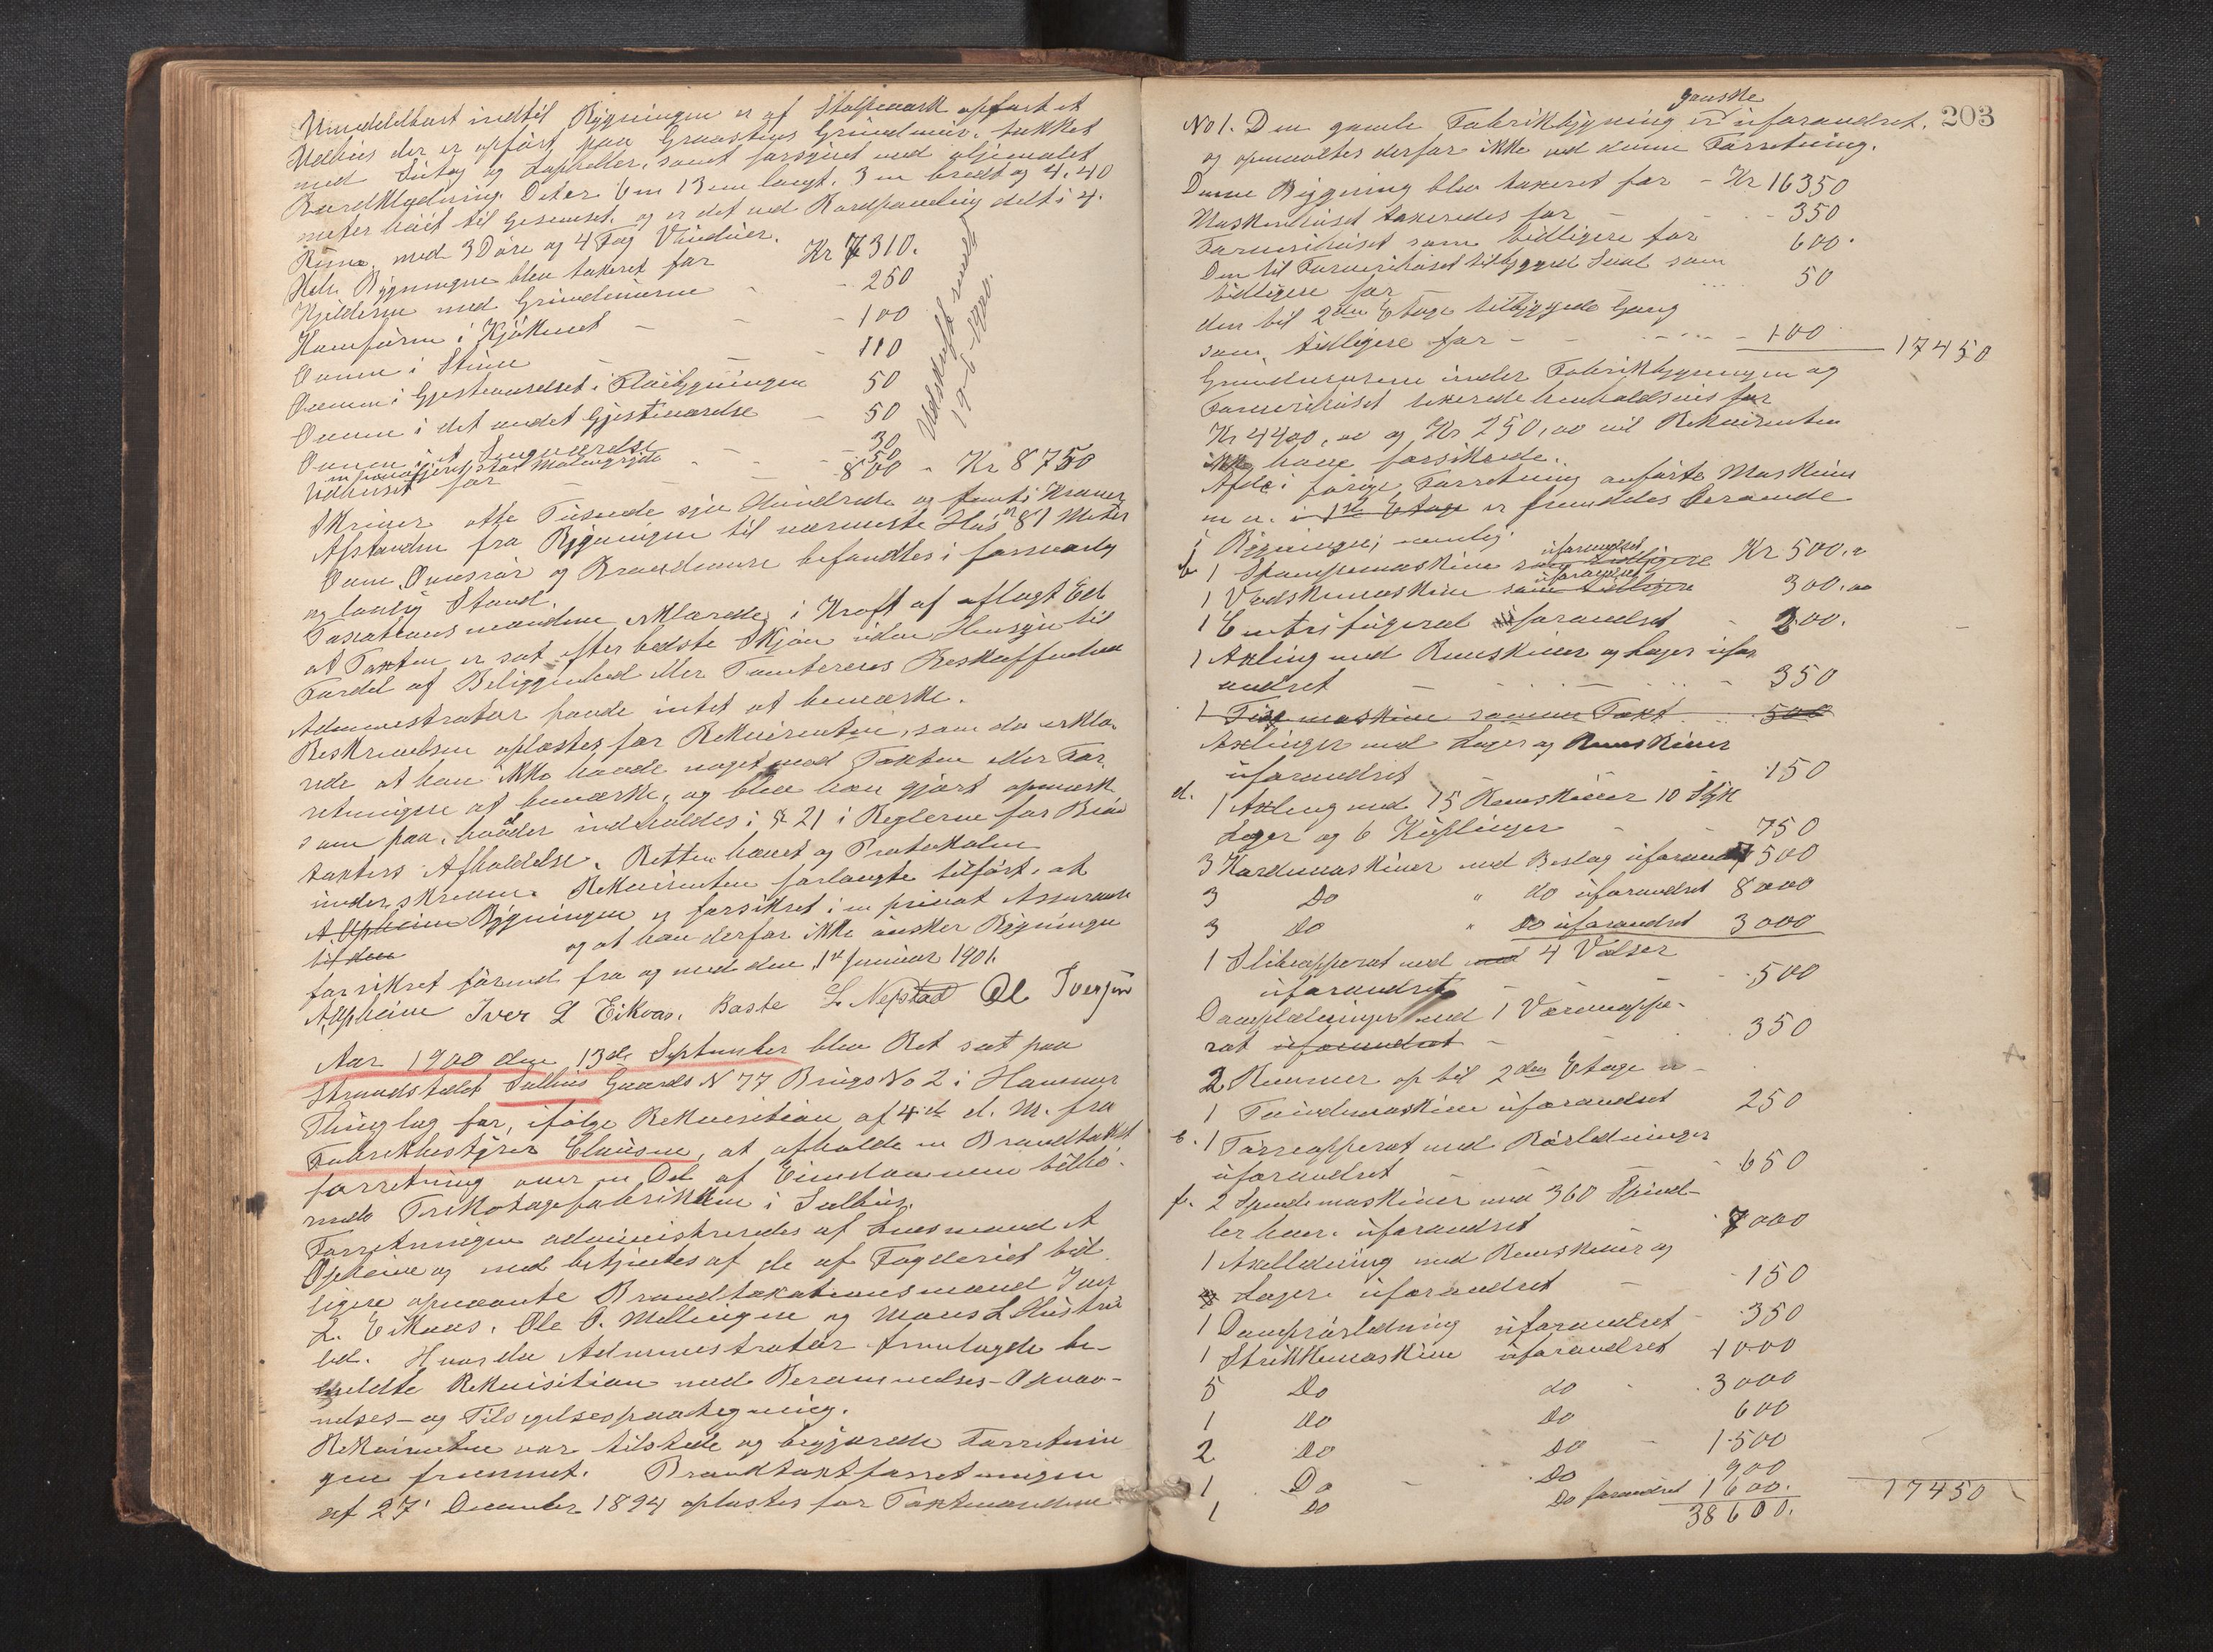 Umiddelbart indtil Bygningen er af Stolpeværk opført et
Udhus der er opført paa Graastens Grundmur, tækket
med Sutag og Tagheller, samt forsynet med oljemalet
Bordklædning. Det er 6 m 13 cm langt, 3 m bredt og 4,40
meter høit til Gesimset, og er det ved Bordpaneling delt i 4
Rum, med 3 Døre og 4 Fag Vinduer.
Hele Bygningen blev taxeret for Kr 7310.
Kjelderen med Grundmurene - - 250
Komfuren i Kjøkkenet - - 100
Ovnen i Stuen - - 110
Ovnen i Gjesteværelset i Fløibygningen 50
Ovnen i det andet Gjesteværelse - 50
Ovnen i et Sengeværelse 30
50
Udhuset for - - - 800 - Kr 8750
Udskrift sendt
19-6-1900.
Skriver otte Tusende syv Hundrede og femti Kroner
Afstanden fra Bygningen til nærmeste Hus er 81 Meter
Ovne, Ovnsrør og Brandmure befandtes i forsvarlig
og lovlig Stand.
Taxationsmændene erklærede, i Kraft af aflagt Ed
at Taxten er sat efter bedste Skjøn uden Hensyn til
Fordel af Beliggenhed eller Tomterens Beskaffenhed
Administrator havde intet at bemærke.
Beskrivelsen oplæstes for Rekvirenten, som da erklæ-
rede at han ikke havde noget mod Taxten eller For-
retningen at bemærke, og blev han gjort opmærk-
som paa, hvad der indeholdes i § 21 i Reglerne for Brand
taxters Afholdelse. Retten hævet og Protokolen
underskreven. Rekvirenten forlangte tilført, at
Bygningen er forsikret i en privat Assurance
til den og at han derfor ikke ønsker Bygningen
forsikret førend fra og med den 1ste Januar 1901.
A Opheim Iver L Eikaas. Baste L. Nepstad Ole Iversen
Aar 1900 den 13de September blev Ret sat paa
Strandstedet Salhus Gaards N 77 Brugs No 2 i Hammer
Thinglag for, ifølge Rekvisition af 4de d. M. fra
Fabrikbestyrer Clausen, at afholde en Brandtaxt
forretning over en Del af Eiendommen tilhø-
rende Trikotagefabrikken i Salhus.
Forretningen administreredes af Lensmand A
Opheim og med betjentes af de af Fogderiet tid
ligere opnævnte Brandtaxationsmænd Iver
L. Eikaas, Ole O. Mellingen og Mons L Hustve
led. Hvorda Administrator fremlagde be-
meldte Rekvisition med Berammelses- Opnæv-
nelses- og Tilsigelsespaategning.
Rekvirenten var tilstede og begjærede Forretnin
gen fremmet. Brandtaxtforretningen
af 27' December 1894 oplæstes for Taxtmændene
203
ganske
No 1. Den gamle Fabrikbygning er uforandret,
og opmaaltes derfor ikke ved denne Forretning.
Denne Bygning blev taxeret for - Kr 16350
Maskinhuset taxeredes for - - 350
Farverihuset som tidligere for 600.
Den til Farverihuset tilbyggede Sval som
tidligere for - 50
den til 2den Etage tilbyggede Gang
som tidligere for - - 100 17450
Grundmurene under Fabrikbygningen og
Farverihuset taxerede henholdsvis for
Kr 4400,00 og Kr 250,00 vil Rekvirenten
ikke have forsikrede.
Af de i forrige Forretning anførte Maskiner
m.v. i 1ste Etage er fremdeles beroende
i Bygningen, nemlig:
uforandret
b 1 Stampemaskine som tidligere Kr 500,00
uforandret
1 Vadskemaskine som tidligere 300,00
1 Centrifugerad uforandret - 200.
1 Axling med Remskiver og Lager ufor
andret - - 350
1 maskine samme Taxt 500
Axlinger med Lager og Remskiver
uforandret 150
d. 1 Axling med 15 Remskiver 10 Stk
Lager og 6 Koplinger - - 750
3 Kardemaskiner med Beslag uforandret 7500
3 Do " do uforandret 8000
3 Do " Do uforandret 3000
1 Slibeapparat med med 4 Valser
uforandret - - 500
Dampledninger med 1 Varmeappa-
rat uforandret - 350
2 Remmer op til 2den Etage
1 maskine uforandret 250
e. 1 Tørreapparat med Rørledninger
uforandret - - 650
f. 2 Spindemaskiner med 360 Spind-
ler hver. uforandret - 7000
1 Axelledning med Remskiver og
Lager uforandret - 150
1 Damprørledning uforandret - 350
1 Strikkemaskine uforandret 1000
5 Do do 3000
1 do do 600
2 do do - 1500
1 Do - Do 900
1 Do Do forandret 1600.
38600. 17450